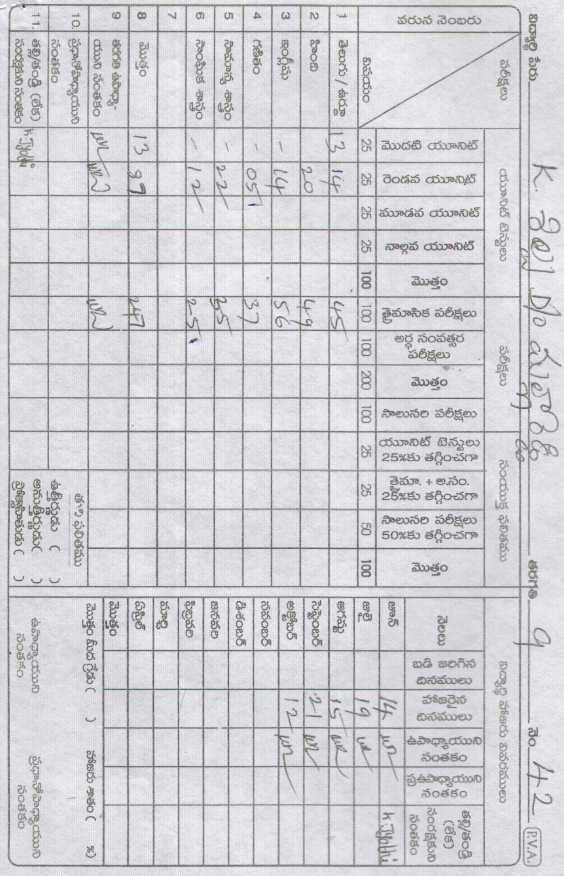 విద్యార్థి పేరు K. తరగతి 9 నెం. 42 P.V.A.
వరుస నెంబరు పరీక్షలు యూనిట్ టెస్టులు పరీక్షలు సంయుక్త ఫలితము
విషయం మొదటి యూనిట్ రెండవ యూనిట్ మూడవ యూనిట్ నాల్గవ యూనిట్ మొత్తం త్రైమాసిక పరీక్షలు అర్ధ సంవత్సర పరీక్షలు మొత్తం సాలుసరి పరీక్షలు యూనిట్ టెస్టులు 25%కు తగ్గించగా త్రైమా. + అ.సం. 25%కు తగ్గించగా సాలుసరి పరీక్షలు 50%కు తగ్గించగా మొత్తం
25 25 25 25 100 100 100 200 100 25 25 50 100
1 తెలుగు / ఉర్దూ 13 14 45
2 హింది 20 49
3 ఇంగ్లీషు - 14 56
4 గణితం - 05 37
5 సామాన్య శాస్త్రం - 22 35
6 సాంఘిక శాస్త్రం - 12 25
7
8 మొత్తం 13 87 247
9 తరగతి ఉపాధ్యాయుని సంతకం
10. ప్రధానోపాధ్యాయుని సంతకం
11. తల్లి/తండ్రి (లేక) సంరక్షకుని సంతకం
తుది ఫలితము
ఉత్తీర్ణుడు ( )
అనుత్తీర్ణుడు ( )
ప్రోత్సాహితుడు ( )
విద్యార్థి హాజరు వివరములు
నెలలు బడి జరిగిన దినములు హాజరైన దినములు ఉపాధ్యాయుని సంతకం ప్రఉపాధ్యాయుని సంతకం తల్లి/తండ్రి (లేక) సంరక్షకుని సంతకం
జూన్ 14
జులై 19
ఆగష్టు 15
సెప్టెంబర్ 21
అక్టోబర్ 12
నవంబర్
డిశంబర్
జనవరి
ఫిబ్రవరి
మార్చి
ఏప్రిల్
మొత్తం
మొత్తం మీద గ్రేడు ( ) హాజరు శాతం ( %)
ఉపాధ్యాయుని సంతకం ప్రధానోపాధ్యాయుని సంతకం